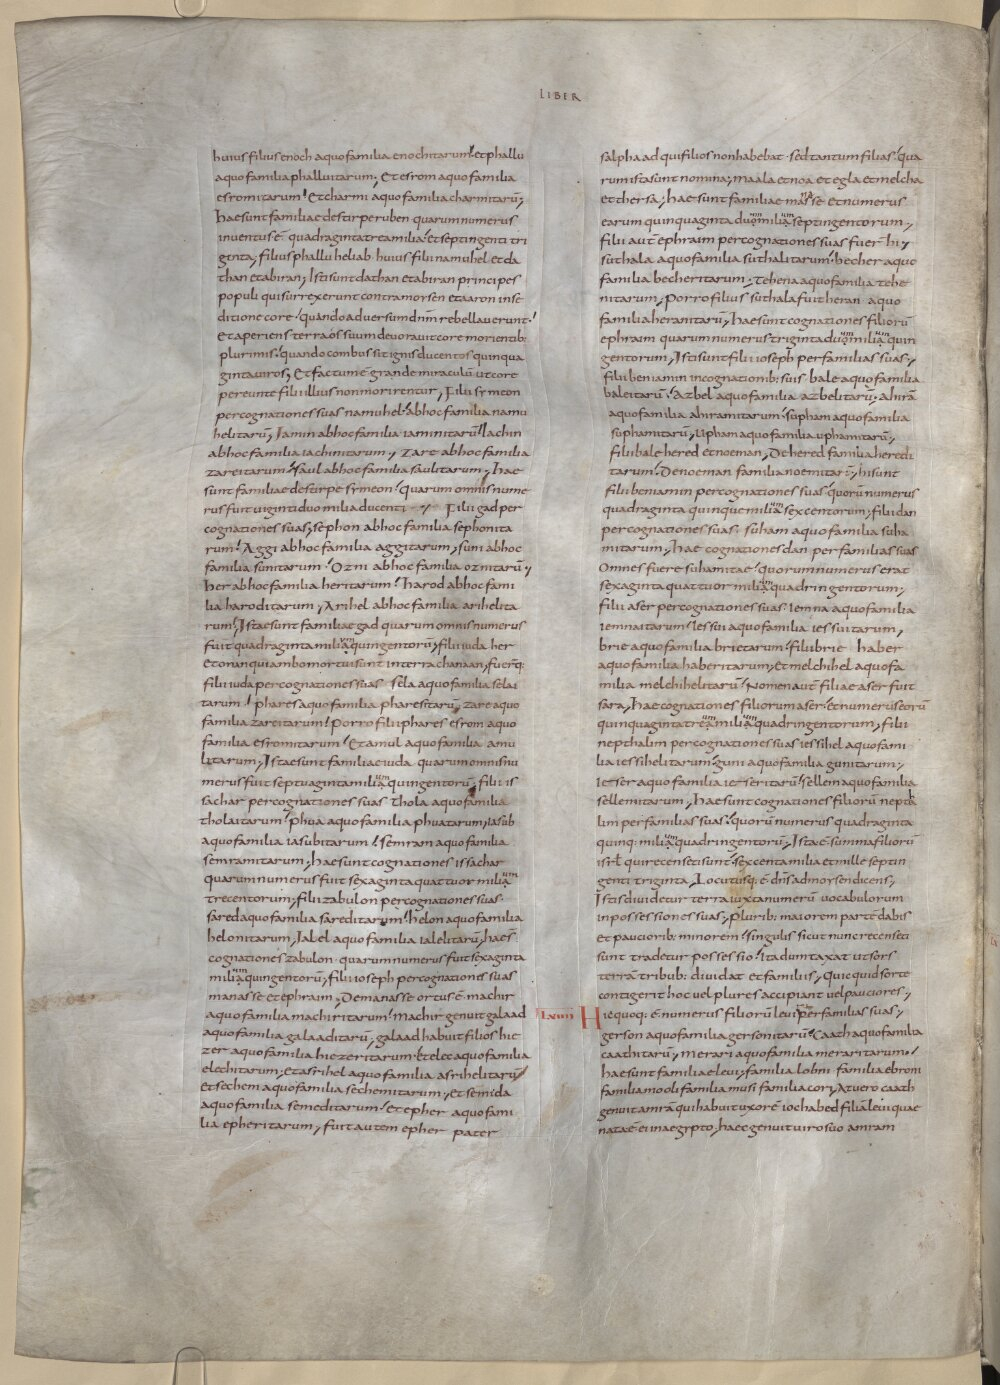 LIBER
huius filius enoch a quo familia enochitarum. et phallu
a quo familia phalluitarum; Et esrom a quo familia
esromitarum. Et charmi a quo familia charmitarū;
hae sunt familiae de stirpe ruben quarum numerus
inventus ē quadraginta tria milia. et septingenti tri
ginta; filius phallu heliab. huius filii namuhel et da
than et abiran; Isti sunt dathan et abiran principes
populi qui surrexerunt contra morsen et aaron in se
ditione core. quando adversum dnm rebellaverunt.
et aperiens terra os suum devoravit core morientib:
plurimis. quando combussit ignis ducentos quinqua
ginta viros; Et factum ē grande miraculū ut core
pereunte filii illius non morirentur; Filii symeon
per cognationes suas namuhel. ab hoc familia namu
helitarū; Iamin ab hoc familia iaminitarū. Iachin
ab hoc familia iachinitarum; Zare ab hoc familia
zareitarum. saul ab hoc familia saulitarum; hae
sunt familiae de stirpe symeon. quarum omnis nume
rus fuit viginti duo milia ducenti; Filii gad per
cognationes suas; sephon ab hoc familia sephonita
rum. Aggi ab hoc familia aggitarum; suni ab hoc
familia sunitarum. Ozni ab hoc familia oznitarū;
her ab hoc familia heritarum. harod ab hoc fami
lia haroditarum; Arihel ab hoc familia arihelita
rum. Istae sunt familiae gad quarum omnis numerus
fuit quadraginta milia um quingentorū; filii iuda her
et onan qui ambo mortui sunt in terra chanaan; fuerq;
filii iuda per cognationes suas sela a quo familia selai
tarum. phares a quo familia pharesitarū zare a quo
familia zareitarum. Porro filii phares esrom a quo
familia esromitarum. Et amul a quo familia amu
litarum; Istae sunt familiae iuda quarum omnis nu
merus fuit septuaginta milia um quingentorū; filii is
sachar per cognationes suas thola a quo familia
tholaitarum. Phua a quo familia phuatarum; iasub
a quo familia iasubitarum. semran a quo familia
semranitarum; hae sunt cognationes issachar
quarum numerus fuit sexaginta quattuor milia um
trecentorum; filii zabulon per cognationes suas.
sared a quo familia sareditarum. helon a quo familia
helonitarum; Jalel a quo familia ialelitarū; hae s̄
cognationes zabulon. quarum numerus fuit sexaginta
milia um quingentorū; filii ioseph per cognationes suas
manasse et ephraim; De manasse ortus ē machir
a quo familia machiritarum. Machir genuit galaad
a quo familia galaaditarū; galaad habuit filios hie
zer a quo familia hiezeritarum. Et elec a quo familia
elechitarum; et asrihel a quo familia asrihelitarū
et sechem a quo familia sechemitarum; et semida
a quo familia semeditarum. et epher a quo fami
lia epheritarum; fuit autem epher pater
salphaad qui filios non habebat. sed tantum filias. qua
rum ista sunt nomina; maala et noa et egla et melcha
et thersa; hae sunt familiae manasse et numerus
earum quinquaginta duo um milia um septingentorum;
filii aut̄ ephraim per cognationes suas fuer̄ hi;
suthala a quo familia suthalitarum. becher a quo
familia becheritarum. Tehen a quo familia tehe
nitarum; Porro filius suthala fuit heran a quo
familia heranitarū; hae sunt cognationes filiorū
ephraim quarum numerus triginta duo um milia um quin
gentorum; Isti sunt filii ioseph per familias suas;
filii beniamin in cognationib: suis bale a quo familia
baleitarū. Azbel a quo familia azbelitarū. ahirā
a quo familia ahiramitarum. supham a quo familia
suphamitarū; Upham a quo familia uphamitarū;
filii bale hered et noeman; De hered familia heredi
tarum. De noeman familia noemitarū; hi sunt
filii beniamin per cognationes suas. quorū numerus
quadraginta quinque milia um sexcentorum; filii dan
per cognationes suas. suham a quo familia suha
mitarum; hae cognationes dan per familias suas
Omnes fuere suhamitae. quorum numerus erat
sexaginta quattuor milia um quadringentorum;
filii aser per cognationes suas. iemna a quo familia
iemnaitarum. iessui a quo familia iessuitarum;
brie a quo familia brietarum. filii brie haber
a quo familia haberitarum; et melchihel a quo fa
milia melchihelitarū. Nomen aut̄ filiae aser fuit
sara; hae cognationes filiorum aser. et numerus eorū
quinquaginta tria um milia um quadringentorum; filii
nepthalim per cognationes suas iessihel a quo fami
lia iessihelitarum. guni a quo familia gunitarum;
ieser a quo familia ieseritarū. sellem a quo familia
sellemitarum; hae sunt cognationes filiorū neptha
lim per familias suas. quorū numerus quadraginta
quinq: milia um quadringentorū; Ista ē summa filiorū
isrl qui recensiti sunt. sexcenta milia et mille septin
genti triginta; Locutusq; ē dns ad morsen dicens;
Istis dividetur terra iuxta numerū vocabulorum
in possessiones suas; Plurib: maiorem partē dabis
et paucirorib: minorem. singulis sicut nunc recensiti
sunt tradetur possessio. Ita dumtaxat ut sors
terrā tribub: dividat et familiis; Quicquid sorte
contigerit hoc vel plures accipiant vel pauciores;
Hic quoq: ē numerus filiorū levi per familias suas;
gerson a quo familia gersonitarū. Caath a quo familia
caathitarū; Merari a quo familia meraritarum.
hae sunt familiae levi; familia lobni. familia ebroni
familia mooli familia musi familia cori; At vero caath
genuit amrā qui habuit uxorē iochabed filiā levi quae
nata ē ei in aegypto; haec genuit viro suo amram